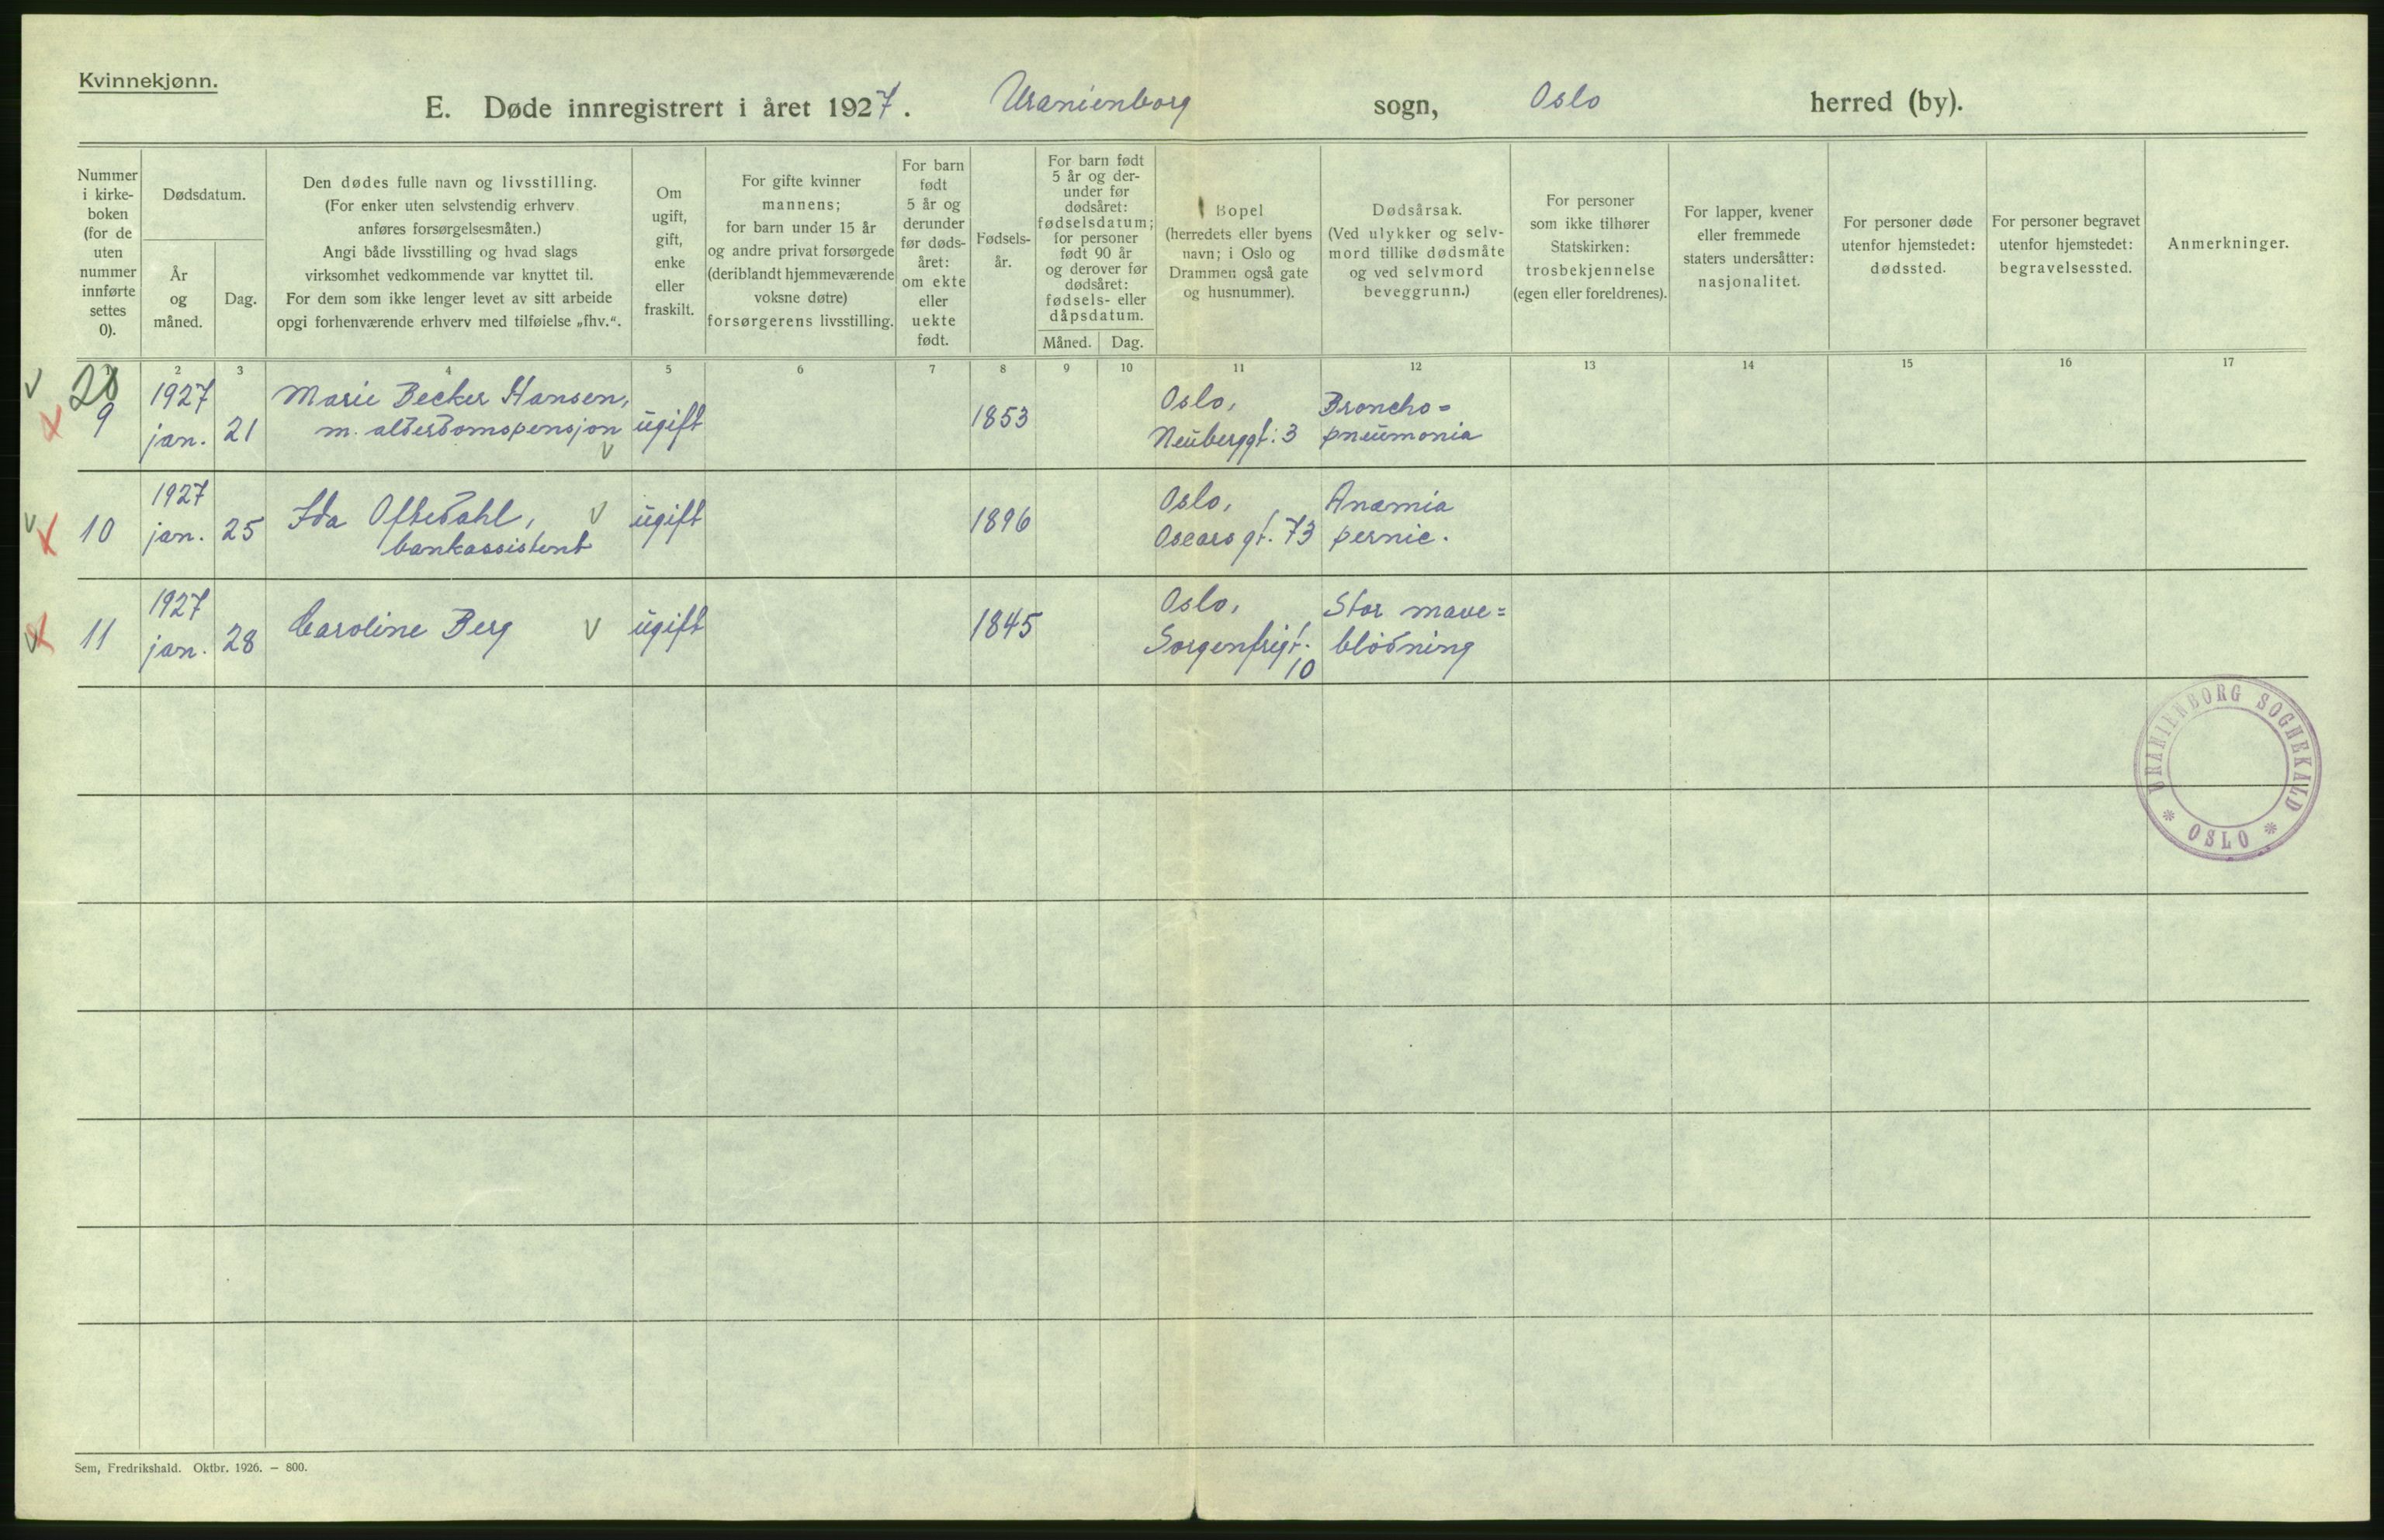 Kvinnekjønn.
E. Døde innregistrert i året 1927. Uranienborg sogn, Oslo herred (by).
Nummer
i kirke-
boken
(for de
uten
nummer
innførte
settes
0).
Dødsdatum.
År
og
måned.
Dag.
Den dødes fulle navn og livsstilling.
(For enker uten selvstendig erhverv
anføres forsørgelsesmåten.)
Angi både livsstilling og hvad slags
virksomhet vedkommende var knyttet til.
For dem som ikke lenger levet av sitt arbeide
opgi forhenværende erhverv med tilføielse „fhv.“.
Om
ugift,
gift,
enke
eller
fraskilt.
For gifte kvinner
mannens;
for barn under 15 år
og andre privat forsørgede
(deriblandt hjemmeværende
voksne døtre)
forsørgerens livsstilling.
For barn
født
5 år og
derunder
før døds-
året:
om ekte
eller
uekte
født.
Fødsels-
år.
For barn født
5 år og der-
under før
dødsåret:
fødselsdatum;
for personer
født 90 år
og derover før
dødsåret:
fødsels- eller
dåpsdatum.
Måned. Dag.
Bopel
(herredets eller byens
navn; i Oslo og
Drammen også gate
og husnummer).
Dødsårsak.
(Ved ulykker og selv-
mord tillike dødsmåte
og ved selvmord
beveggrunn.)
For personer
som ikke tilhører
Statskirken:
trosbekjennelse
(egen eller foreldrenes).
For lapper, kvener
eller fremmede
staters undersåtter:
nasjonalitet.
For personer døde
utenfor hjemstedet:
dødssted.
For personer begravet
utenfor hjemstedet:
begravelsessted.
Anmerkninger.
1 2 3 4 5 6 7 8 9 10 11 12 13 14 15 16 17
9 1927 jan. 21 Marie Becker Hansen, ugift 1853 Oslo, Broncho=
m. alderdomspensjon Neuberggt. 3 pneumonia
10 1927 jan. 25 Ida Oftedahl, ugift 1896 Oslo, Anæmia
bankassistent Oscars gt. 73 pernic.
11 1927 jan. 28 Caroline Berg ugift 1845 Oslo, Stor mave=
Sorgenfrigt. 10 blødning
URANIENBORG SOGNEKALD
* OSLO *
Sem, Fredrikshald. Oktbr. 1926. — 800.